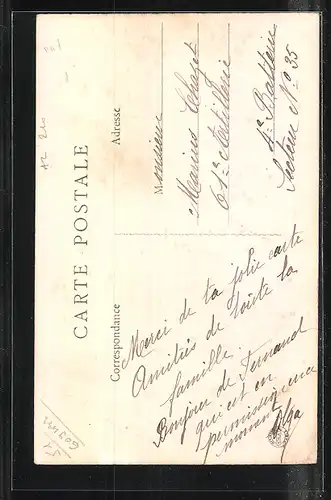 CARTE POSTALE
Correspondance
Adresse
Merci de ta jolie carte
Amitiés de toute la
famille.
Bonjour de Fernand
qui est en
permission en ce
moment Olga
Monsieur
Marius
61e Artillerie
4e Batterie
Secteur No 35